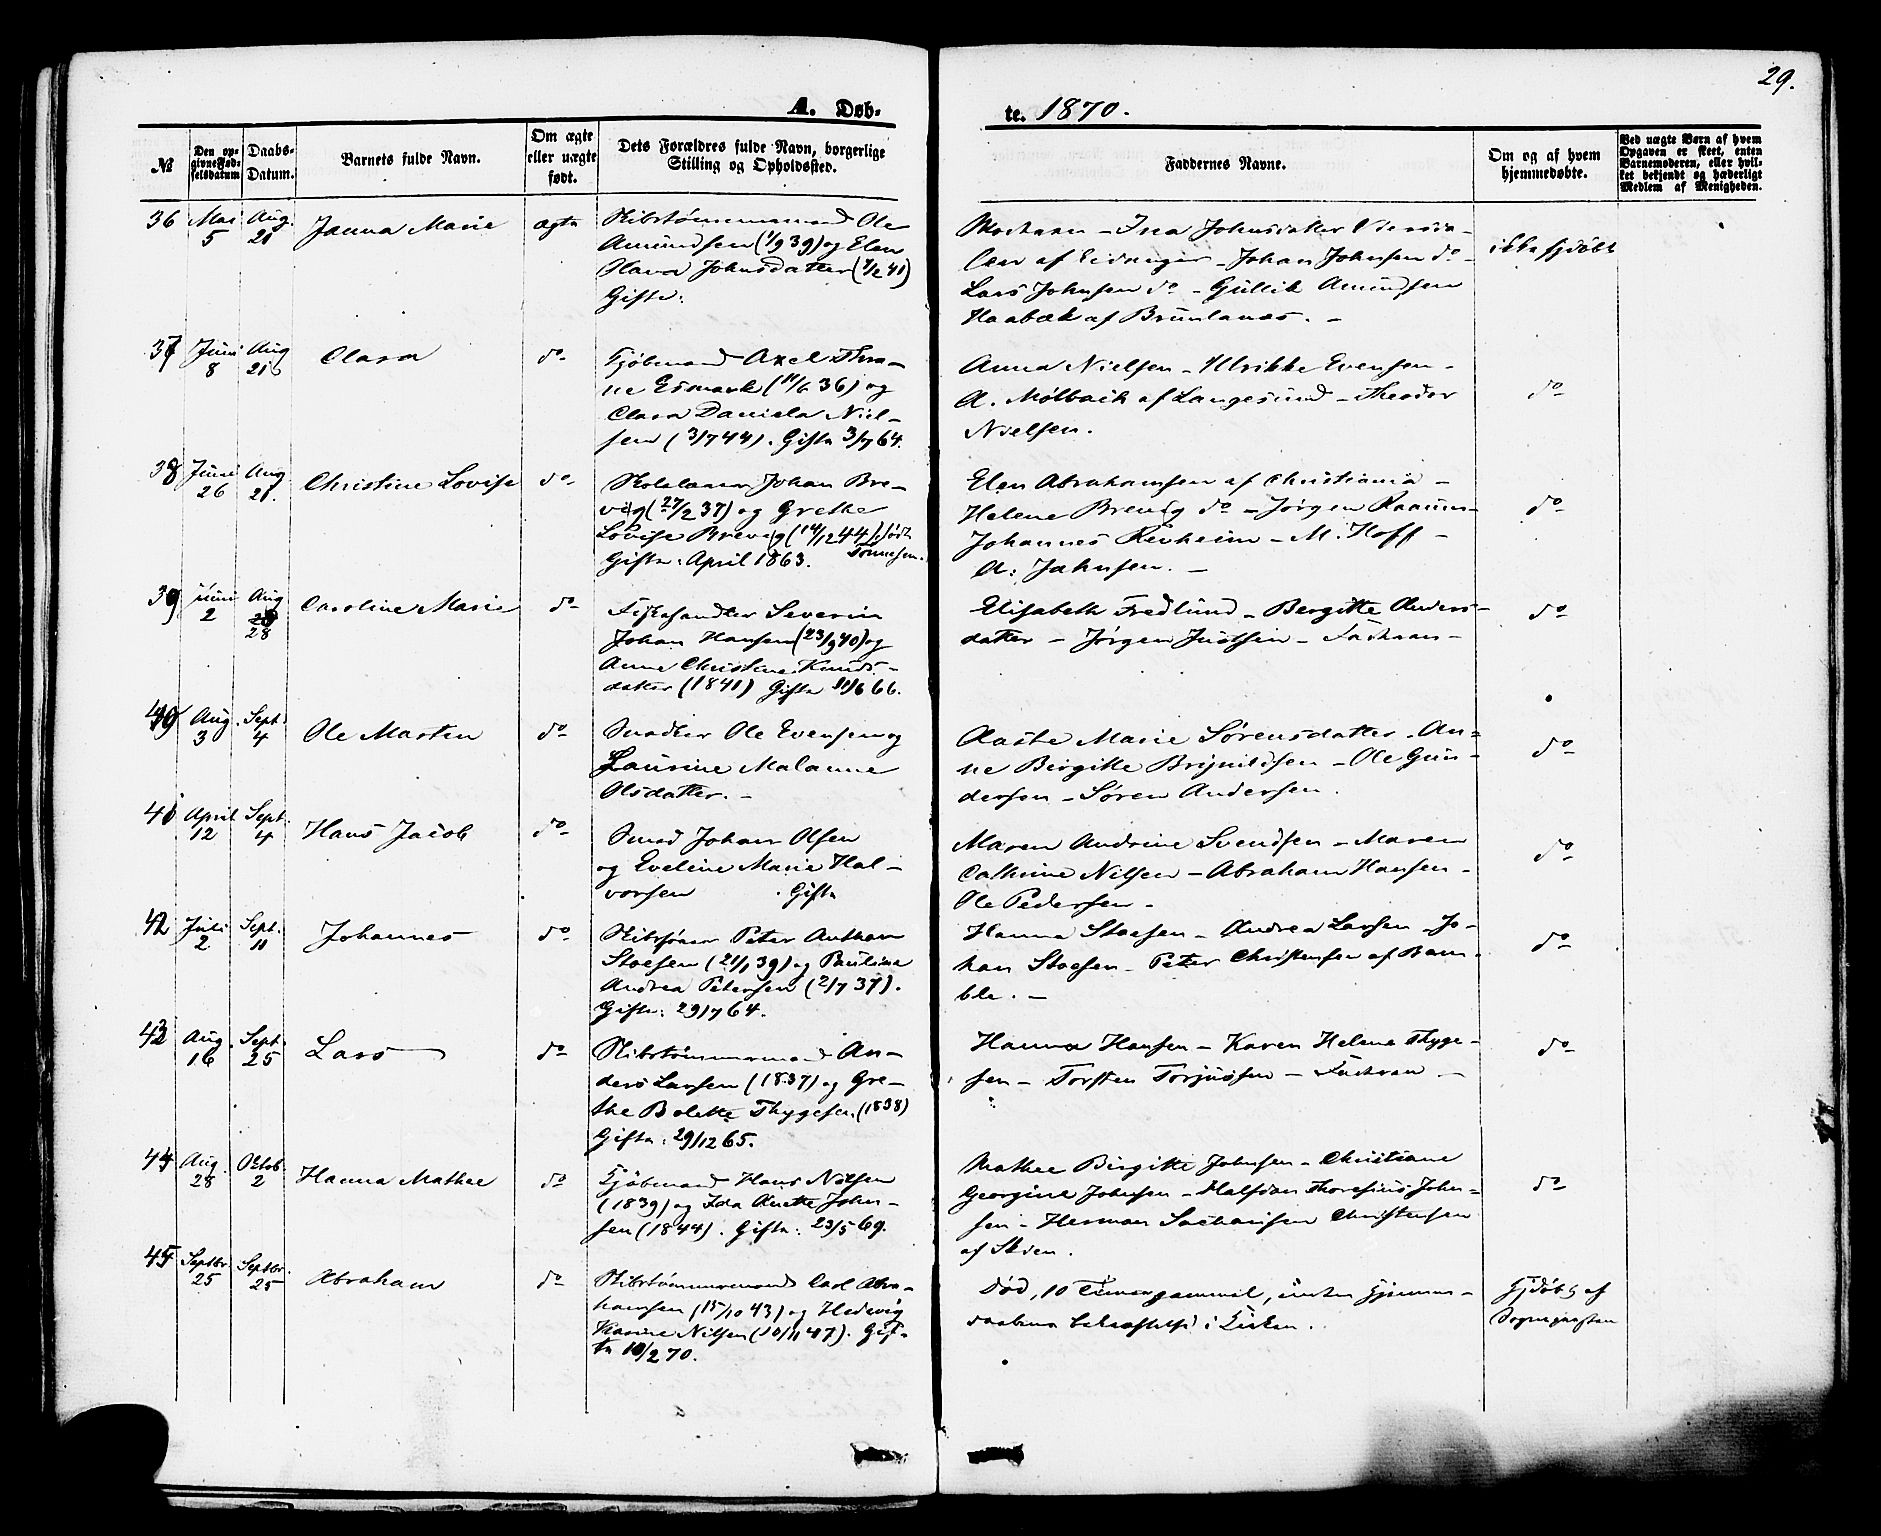 29.
A. Døb-
te. 1870.
№
Den op-
givne Fød-
selsdatum
Daabs-
Datum.
Barnets fulde Navn.
Om ægte
eller uægte
født.
Dets Forældres fulde Navn, borgerlige
Stilling og Opholdssted.
Faddernes Navne.
Om og af hvem
hjemmedøbte.
Ved uægte Børn af hvem
Opgaven er skeet, enten
Barnemoderen, eller hvil-
ket bekjendt og hæderligt
Medlem af Menigheden.
36
Mai
5
Aug.
21
Janna Marie
ægte
Skibstømmermand Ole
Amundsen (1/9 39) og Elen
Maria Johnsdatter (7/2 41)
Gifte.
Johnsdatter
af Eidanger - Johan Johnsen do -
Lars Johnsen do - Gullik Amundsen
Haabæk af Brunlanæs. -
ikke hjdøbt
37
Juni
8
Aug
21
Clara
do
Kjøbmand Axel Thra-
ne Esmark (11/6 36) og
Clara Daniela Niel-
sen (3/7 44). Gifte 3/7 64.
Anna Nielsen - Ulrikke Evensen -
A. Mølback af Langesund - Theodor
Nielsen.
do
38
Juni
26
Aug
21.
Christine Lovise
do
Skolelærer Johan Bre-
vig (27/2 37) og Grethe
Lovise Brevig (14/12 44) født
Gifte: April 1863. Tønnesen.
Elen Abrahamsen af Christiania -
Helene Brevig do - Jørgen Raaum -
Johannes - M. Hoff -
A: Jahnsen. -
do
39
Juni
2
Aug
28
Caroline Marie
do
Fiskehandler Severin
Johan Hansen (23/9 40) og
Anne Christine Knuds-
datter (1841) Gifte 11/6 66.
Elisabeth Fredlund - Bergitte Anders-
datter - Jørgen Justsen - Faderen -
do
40
Aug.
3
Sept.
4
Ole Martin
do
Snedker Ole Evensen og
Laurine Malanne
Olsdatter. -
Aaste Marie Sørensdatter - An-
ne Birgitte Brynildsen - Ole Gun-
dersen - Søren Andersen.
do
41
April
12
Sept.
4
Hans Jacob
do
Smed Johan Olsen
og Eveline Marie Hal-
vorsen Gifte
Maren Andrine Svendsen - Maren
Cathrine Nilsen - Abraham Hansen -
Ole Pedersen -
do
42
Juli
2
Sept.
11
Johannes
do
Skibsfører Peter Anthon
Stoesen (21/1 39) og Pauline
Andrea Petersen (2/7 37).
Gifte: 29/7 64.
Hanna Stoesen - Andrea Larsen - Jo-
han Stoesen - Peter Christensen af Bam-
ble. -
do
43
Aug.
16
Sept.
25
Lars
do
Skibstømmermand An-
ders Larsen (1837) og Gre-
the Bolette Thygesen. (1838)
Gifte: 29/12 65.
Hanna Hansen - Karen Helene Thyge-
sen - Torsten Torjussen - Faderen -
do
44
Aug.
28
Oktob.
2
Hanna Mathee
do
Kjøbmand Hans Nilsen
(1839) og Ida Anette John-
sen (1844). Gifte: 23/5 69.
Mathee Birgitte Johnsen - Christiane
Georgine Johnsen - Halfdan Thoresius John-
sen - Herman Sachariasen Christensen
af Skien.
do
45
Septbr.
25
Septbr.
25
Abraham
do
Skibstømmermand Carl Abra-
hamsen (15/10 43) og Hedevig
Karine Nilsen (10/1 47). Gif-
te 10/2 70.
Død, 10 Timer gammel, uden Hjemme-
daabens bekræftelse i Kirken.
Hjdøbt af
Sognepræsten